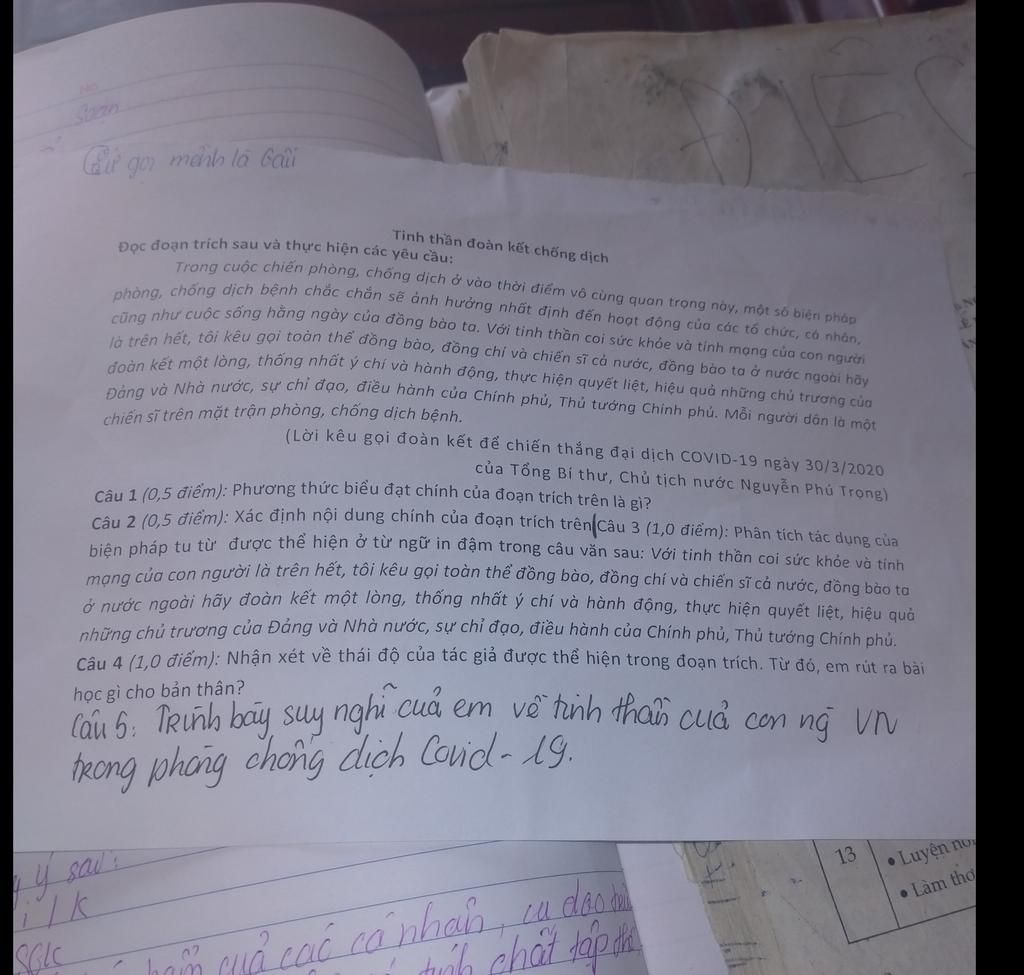 Soạn
gọi mênh là Gấu
ĐIỆ
Tinh thần đoàn kết chống dịch
Đọc đoạn trích sau và thực hiện các yêu cầu:
Trong cuộc chiến phòng, chống dịch ở vào thời điểm vô cùng quan trọng này, một số biện pháp
phòng, chống dịch bệnh chắc chắn sẽ ảnh hưởng nhất định đến hoạt động của các tổ chức, cá nhân,
cũng như cuộc sống hằng ngày của đồng bào ta. Với tinh thần coi sức khỏe và tính mạng của con người
là trên hết, tôi kêu gọi toàn thể đồng bào, đồng chí và chiến sĩ cả nước, đồng bào ta ở nước ngoài hãy
đoàn kết một lòng, thống nhất ý chí và hành động, thực hiện quyết liệt, hiệu quả những chủ trương của
Đảng và Nhà nước, sự chỉ đạo, điều hành của Chính phủ, Thủ tướng Chính phủ. Mỗi người dân là một
chiến sĩ trên mặt trận phòng, chống dịch bệnh.
(Lời kêu gọi đoàn kết để chiến thắng đại dịch COVID-19 ngày 30/3/2020
của Tổng Bí thư, Chủ tịch nước Nguyễn Phú Trọng)
Câu 1 (0,5 điểm): Phương thức biểu đạt chính của đoạn trích trên là gì?
Câu 2 (0,5 điểm): Xác định nội dung chính của đoạn trích trên Câu 3 (1,0 điểm): Phân tích tác dụng của
biện pháp tu từ được thể hiện ở từ ngữ in đậm trong câu văn sau: Với tinh thần coi sức khỏe và tính
mạng của con người là trên hết, tôi kêu gọi toàn thể đồng bào, đồng chí và chiến sĩ cả nước, đồng bào ta
ở nước ngoài hãy đoàn kết một lòng, thống nhất ý chí và hành động, thực hiện quyết liệt, hiệu quả
những chủ trương của Đảng và Nhà nước, sự chỉ đạo, điều hành của Chính phủ, Thủ tướng Chính phủ.
Câu 4 (1,0 điểm): Nhận xét về thái độ của tác giả được thể hiện trong đoạn trích. Từ đó, em rút ra bài
học gì cho bản thân?
Câu 5: Trình bày suy nghĩ của em về tinh thần của con ng VN
trong phòng chống dịch Covid-19.
ý sau:
SGK
của các cá nhân,
chất tập
13
• Luyện
• Làm thơ